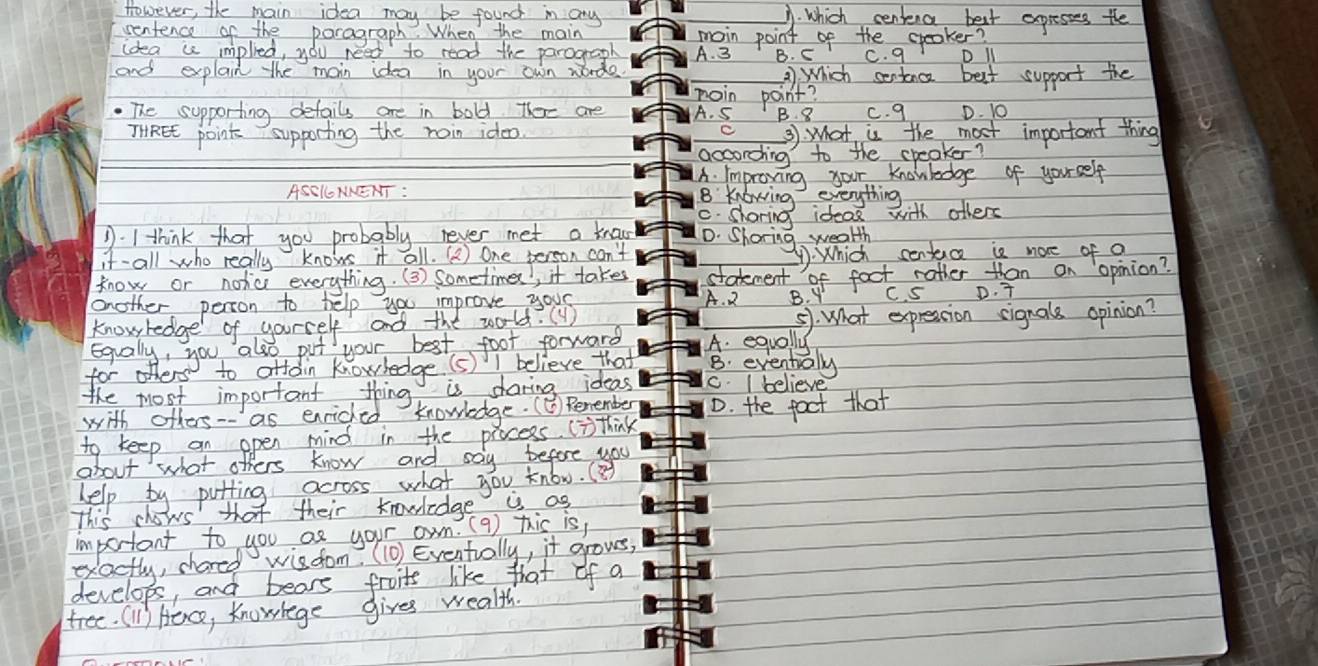 However, the main idea may be found in any
sentence of the paragraph. When the main
idea is implied, you need to read the paragraph
and explain the main idea in your own words.
• The supporting details are in bold. There are
THREE points supporting the main idea.
ASSIGNMENT:
1). I think that you probably never met a know
it-all who really knows it all. (2) One person can't
know or notice everything. (3) Sometimes, it takes
another person to help you improve your
knowledge of yourself and the world. (4)
Equally, you also put your best foot forward
for others to attain knowledge. (5) I believe that
the most important thing is sharing ideas
with others -- as enriched knowledge. (6) Remember
to keep an open mind in the process. (7) Think
about what others know and say before you
help by putting across what you know. (8)
This shows that their knowledge is as
important to you as your own. (9) This is,
exactly, shared wisdom. (10) Eventually, it grows,
develops, and bears fruits like that of a
tree. (11) Hence, knowlege gives wealth.
1). Which sentence best expresses the
main point of the speaker?
A. 3 B. 5 C. 9 D 11
2). Which sentence best support the
main point?
A. 5 B. 8 C. 9 D. 10
C 3) What is the most important thing
according to the speaker?
A. Improving your knowledge of yourself
B. Knowing everything
C. Sharing ideas with others
D. Sharing wealth
4). Which sentence is more of a
statement of fact rather than an opinion?
A. 2 B. 4 C. 5 D. 7
5). What expression signals opinion?
A. equally
B. eventually
C. I believe
D. the fact that